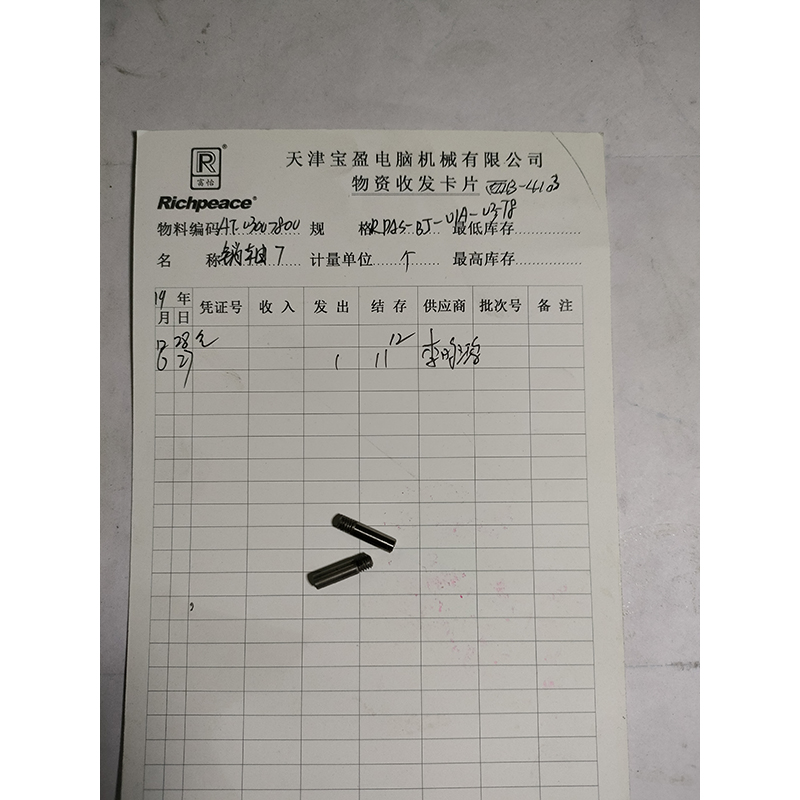 R®
富怡
Richpeace®
天津宝盈电脑机械有限公司
物资收发卡片 四B-4103
物料编码 AT03007800 规 格 RDAS-BJ-V1A-03-78 最低库存
名 称 销轴7 计量单位 个 最高库存
19 年 凭证号 收入 发出 结存 供应商 批次号 备注
月 日
12 28 12
6 27 1 11